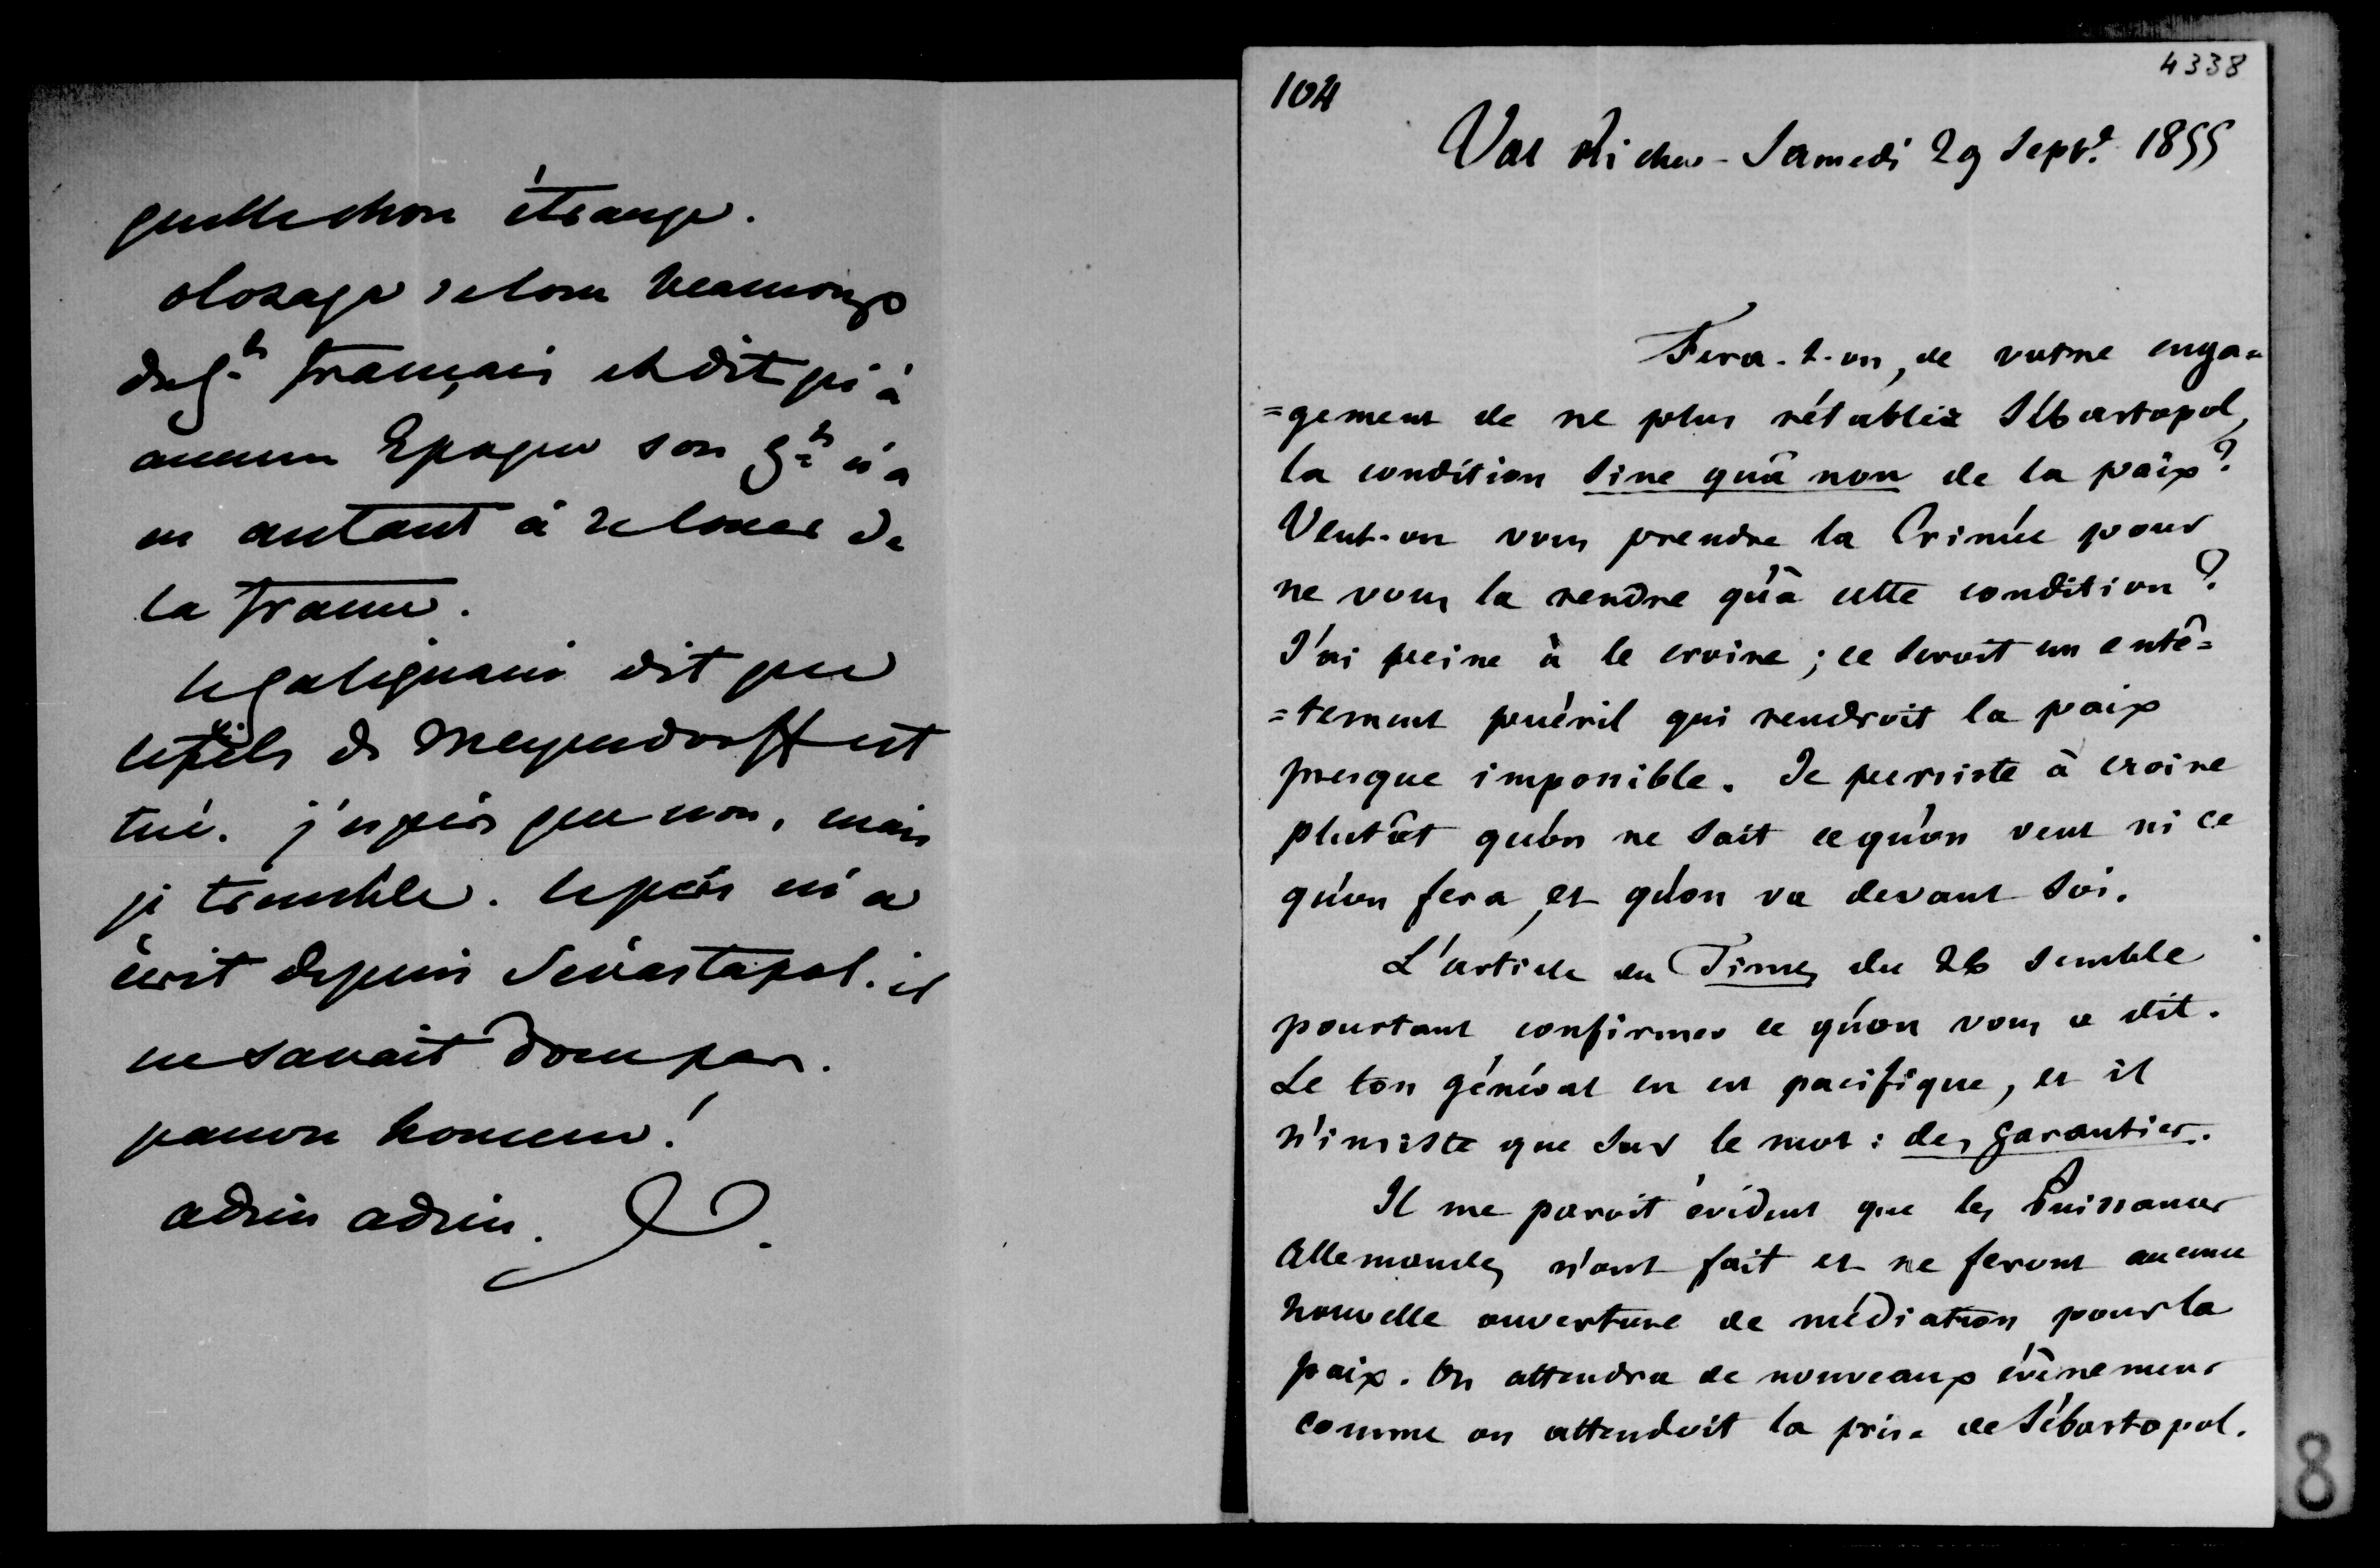 quelle chose étrange.
olozaga se loue beaucoup
du gt français et dit qu'à
aucune Epoque son gt n'a
eu autant à se louer de
la france.
le galignani dit que
le fils de Meyendorff est
tué. j'espère que non, mais
je tremble. le père m'a
écrit depuis Sévastopol. il
ne savait donc pas.
pauvre homme!
adieu adieu.
104
4338
Val Richer - Samedi 29 Sept. 1855
Fera-t-on, de votre enga=
=gement de ne plus rétablir Sébastopol,
la condition sine quâ non de la paix?
Veut-on vous prendre la Crimée pour
ne vous la rendre qu'à cette condition?
J'ai peine à le croire; ce seroit un entê=
=tement puéril qui rendroit la paix
presque impossible. Je persiste à croire
plutôt qu'on ne sait ce qu'on veut ni ce
qu'on fera, et qu'on va devant soi.
L'article du Times du 26 semble
pourtant confirmer ce qu'on vous a dit.
Le ton général en est pacifique, et il
n'insiste que sur le mot: des garanties.
Il me paroit évident que les Puissances
Allemandes n'ont fait et ne feront aucune
nouvelle ouverture de médiation pour la
paix. On attendra de nouveaux évènemens
comme on attendoit la prise de Sébastopol.
8